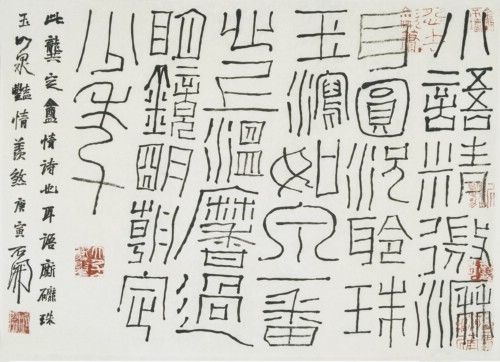 小語精微瀝
耳圓況聆珠
玉瀉如泉一番
心上溫黁過
明鏡明朝定
少年
此龔定盦情詩也耳語廝磨珠
玉如泉豔情羨煞庚寅石開